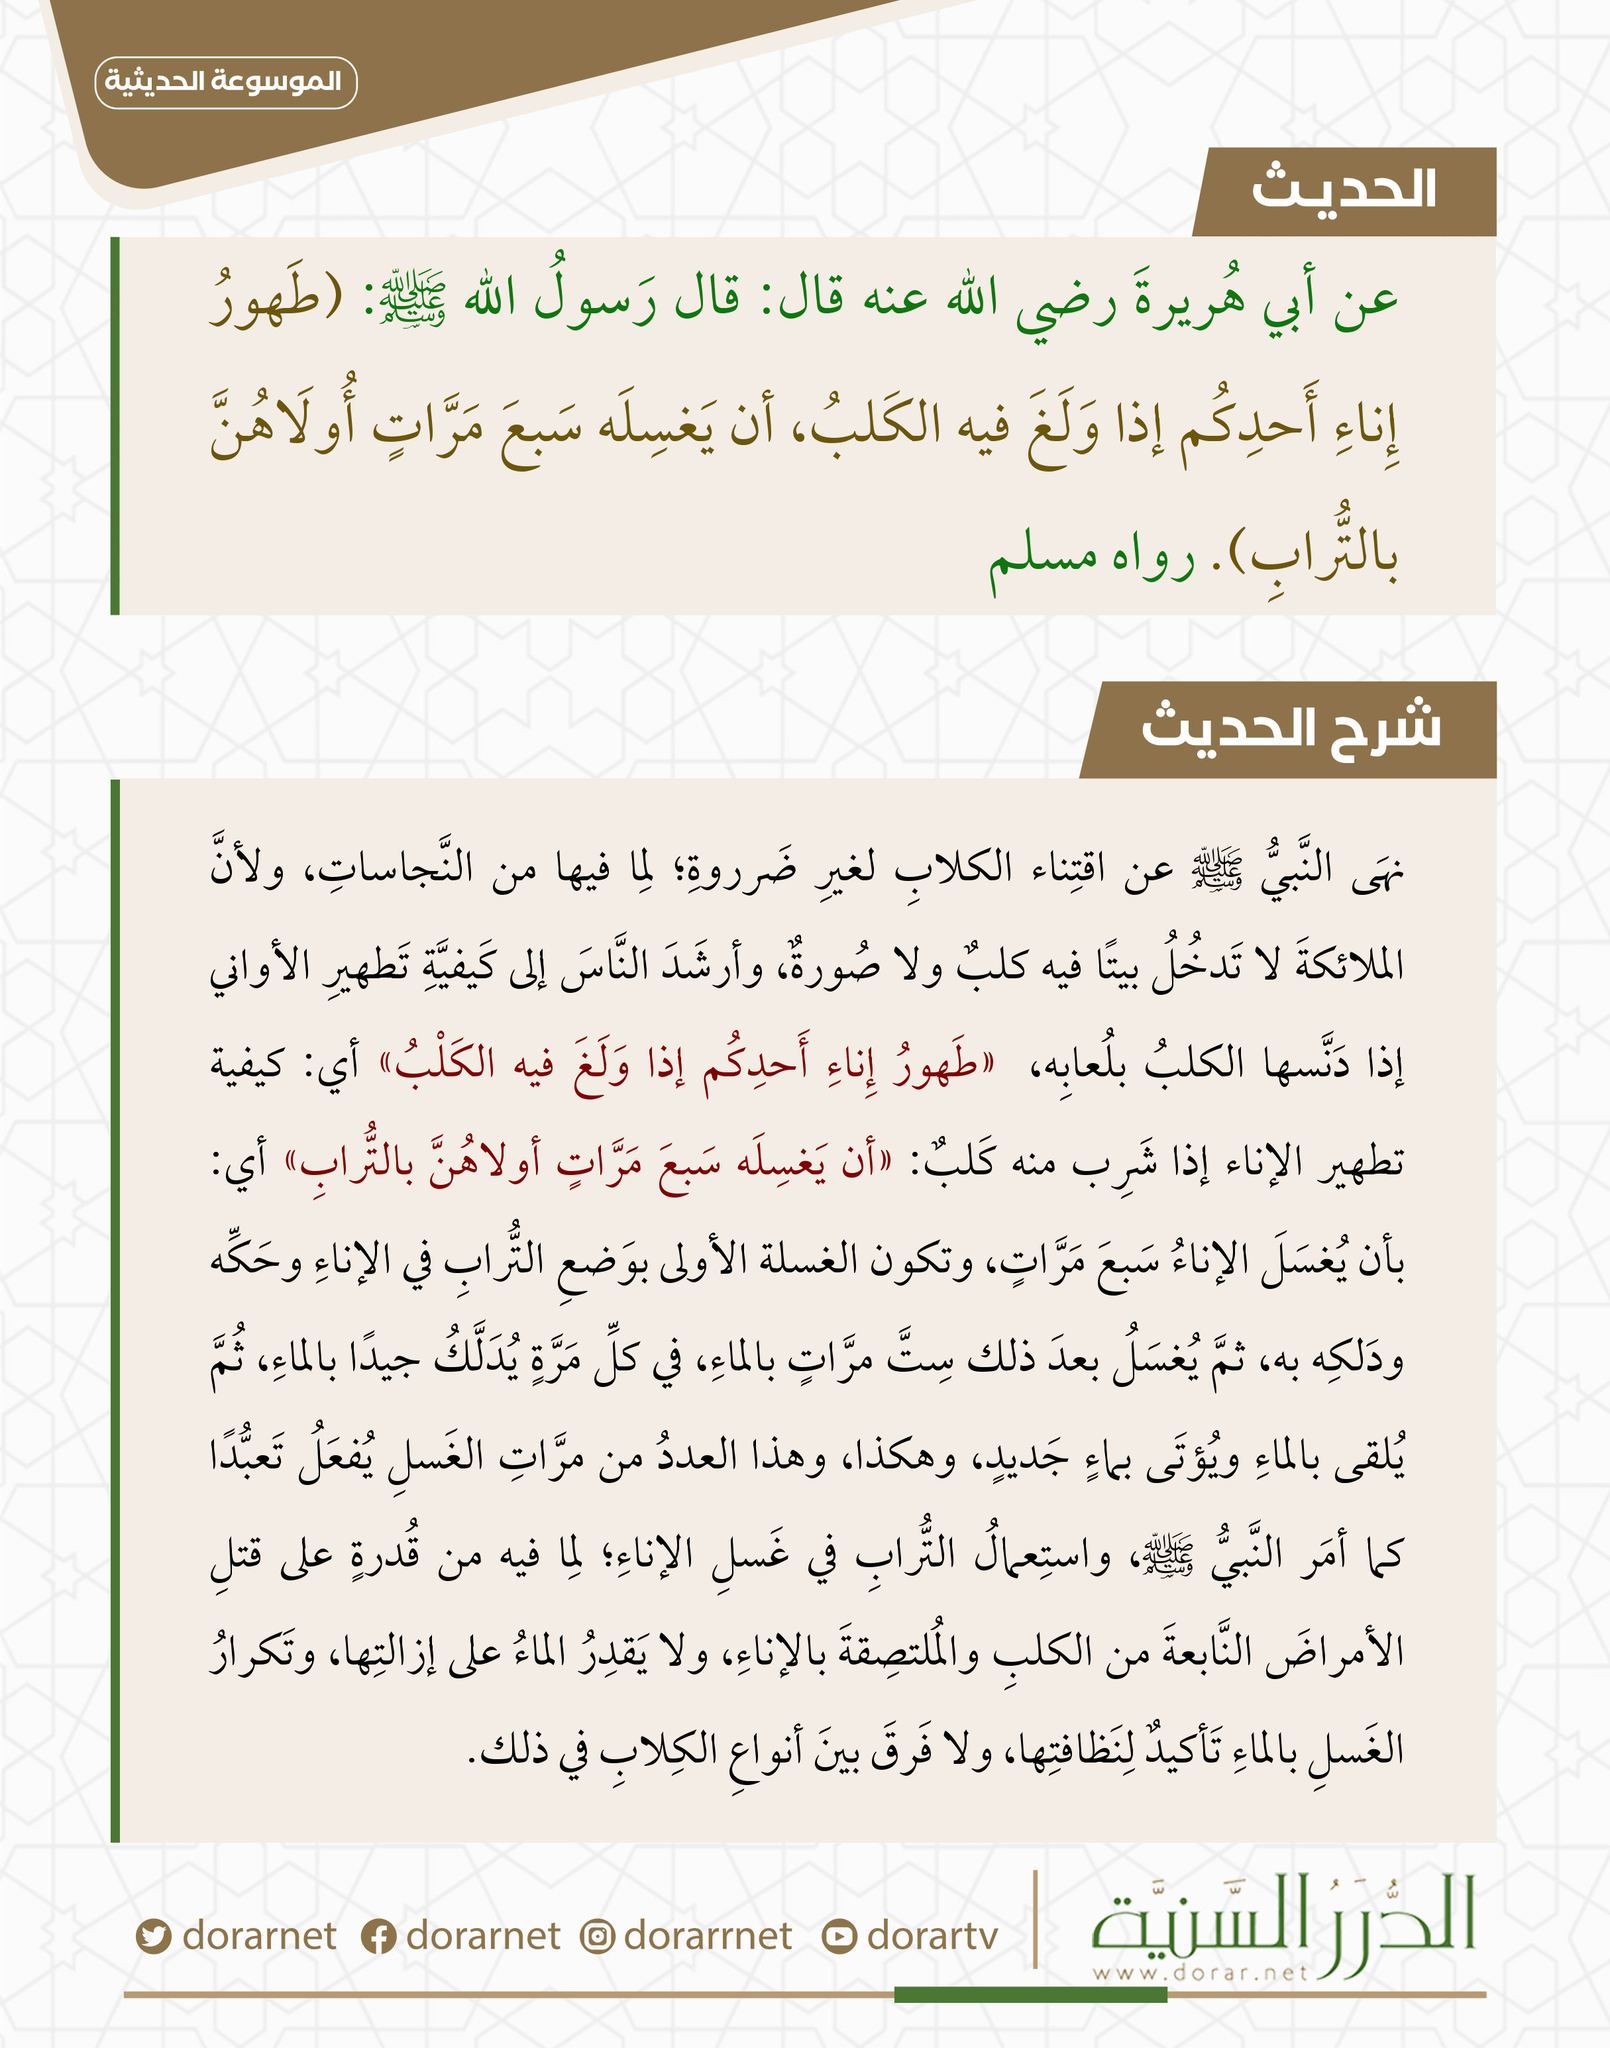 الموسوعة الحديثية
الحديث
عن أبي هُريرةَ رضي الله عنه قال: قال رَسولُ الله ﷺ: (طَهورُ
إِناءِ أَحدِكُم إذا وَلَغَ فيه الكَلبُ، أن يَغسِلَه سَبعَ مَرَّاتٍ أُولَاهُنَّ
بالتُّرابِ). رواه مسلم
شرح الحديث
نهَى النَّبيُّ ﷺ عن اقتِناء الكلابِ لغيرِ ضَرروةِ؛ لِما فيها من النَّجاساتِ، ولأنَّ
الملائكةَ لا تَدخُلُ بيتًا فيه كلبٌ ولا صُورةٌ، وأرشَدَ النَّاسَ إلى كَيفيَّةِ تَطهيرِ الأواني
إذا دَنَّسها الكلبُ بلُعابِه، «طَهورُ إِناءِ أَحدِكُم إذا وَلَغَ فيه الكَلْبُ» أي: كيفية
تطهير الإناء إذا شَرِب منه كَلبٌ: «أن يَغسِلَه سَبعَ مَرَّاتٍ أولاهُنَّ بالتُّرابِ» أي:
بأن يُغسَلَ الإناءُ سَبعَ مَرَّاتٍ، وتكون الغسلة الأولى بوَضعِ التُّرابِ في الإناءِ وحَكِّه
ودَلكِه به، ثمَّ يُغسَلُ بعدَ ذلك سِتَّ مرَّاتٍ بالماءِ، في كلِّ مَرَّةٍ يُدَلَّكُ جيدًا بالماءِ، ثُمَّ
يُلقى بالماءِ ويُؤتَى بماءٍ جَديدٍ، وهكذا، وهذا العددُ من مرَّاتِ الغَسلِ يُفعَلُ تَعبُّدًا
كما أمَر النَّبيُّ ﷺ، واستِعمالُ التُّرابِ في غَسلِ الإناءِ؛ لِما فيه من قُدرةٍ على قتلِ
الأمراضَ النَّابعةَ من الكلبِ والمُلتصِقةَ بالإناءِ، ولا يَقدِرُ الماءُ على إزالتِها، وتَكرارُ
الغَسلِ بالماءِ تَأكيدٌ لِنَظافتِها، ولا فَرقَ بينَ أنواعِ الكِلابِ في ذلك.
الدُّرَرُ السَّنيَّة
www.dorar.net
dorarnet dorarnet dorarrnet dorartv